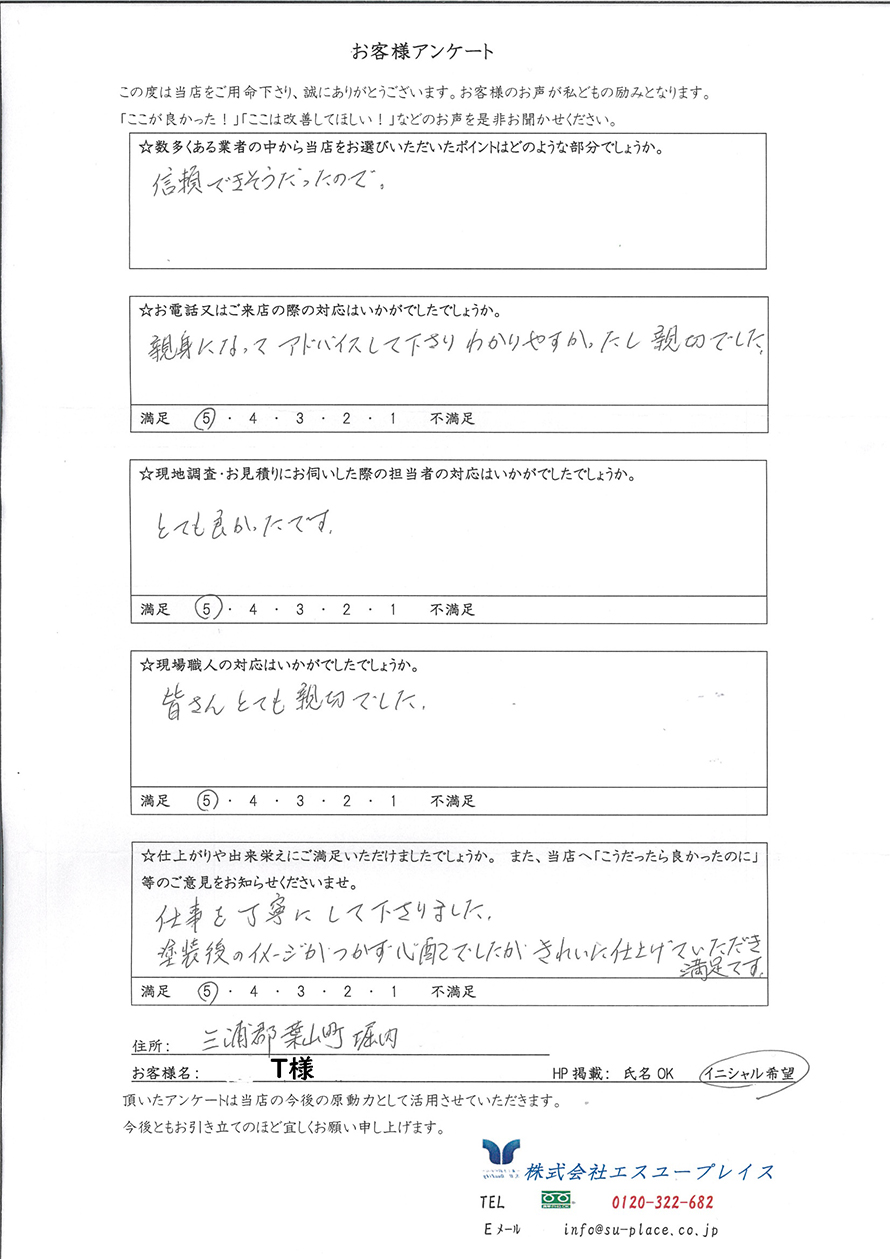 お客様アンケート
この度は当店をご用命下さり、誠にありがとうございます。お客様のお声が私どもの励みとなります。
「ここが良かった！」「ここは改善してほしい！」などのお声を是非お聞かせください。
☆数多くある業者の中から当店をお選びいただいたポイントはどのような部分でしょうか。
信頼できそうだったので。
☆お電話又はご来店の際の対応はいかがでしたでしょうか。
親身になって アドバイスして下さり わかりやすかったし 親切でした。
満足 5 ・ 4 ・ 3 ・ 2 ・ 1 不満足
☆現地調査・お見積りにお伺いした際の担当者の対応はいかがでしたでしょうか。
とても良かったです。
満足 5 ・ 4 ・ 3 ・ 2 ・ 1 不満足
☆現場職人の対応はいかがでしたでしょうか。
皆さん とても 親切でした。
満足 5 ・ 4 ・ 3 ・ 2 ・ 1 不満足
☆仕上がりや出来栄えにご満足いただけましたでしょうか。 また、当店へ「こうだったら良かったのに」
等のご意見をお知らせくださいませ。
仕事を丁寧に して下さりました。
塗装後のイメージがつかず心配でしたが きれいに仕上げていただき
満足です。
満足 5 ・ 4 ・ 3 ・ 2 ・ 1 不満足
住所： 三浦郡葉山町堀内
お客様名： T様 HP掲載： 氏名OK イニシャル希望
頂いたアンケートは当店の今後の原動力として活用させていただきます。
今後ともお引き立てのほど宜しくお願い申し上げます。
株式会社エスユープレイス
TEL 0120-322-682
Eメール info@su-place.co.jp